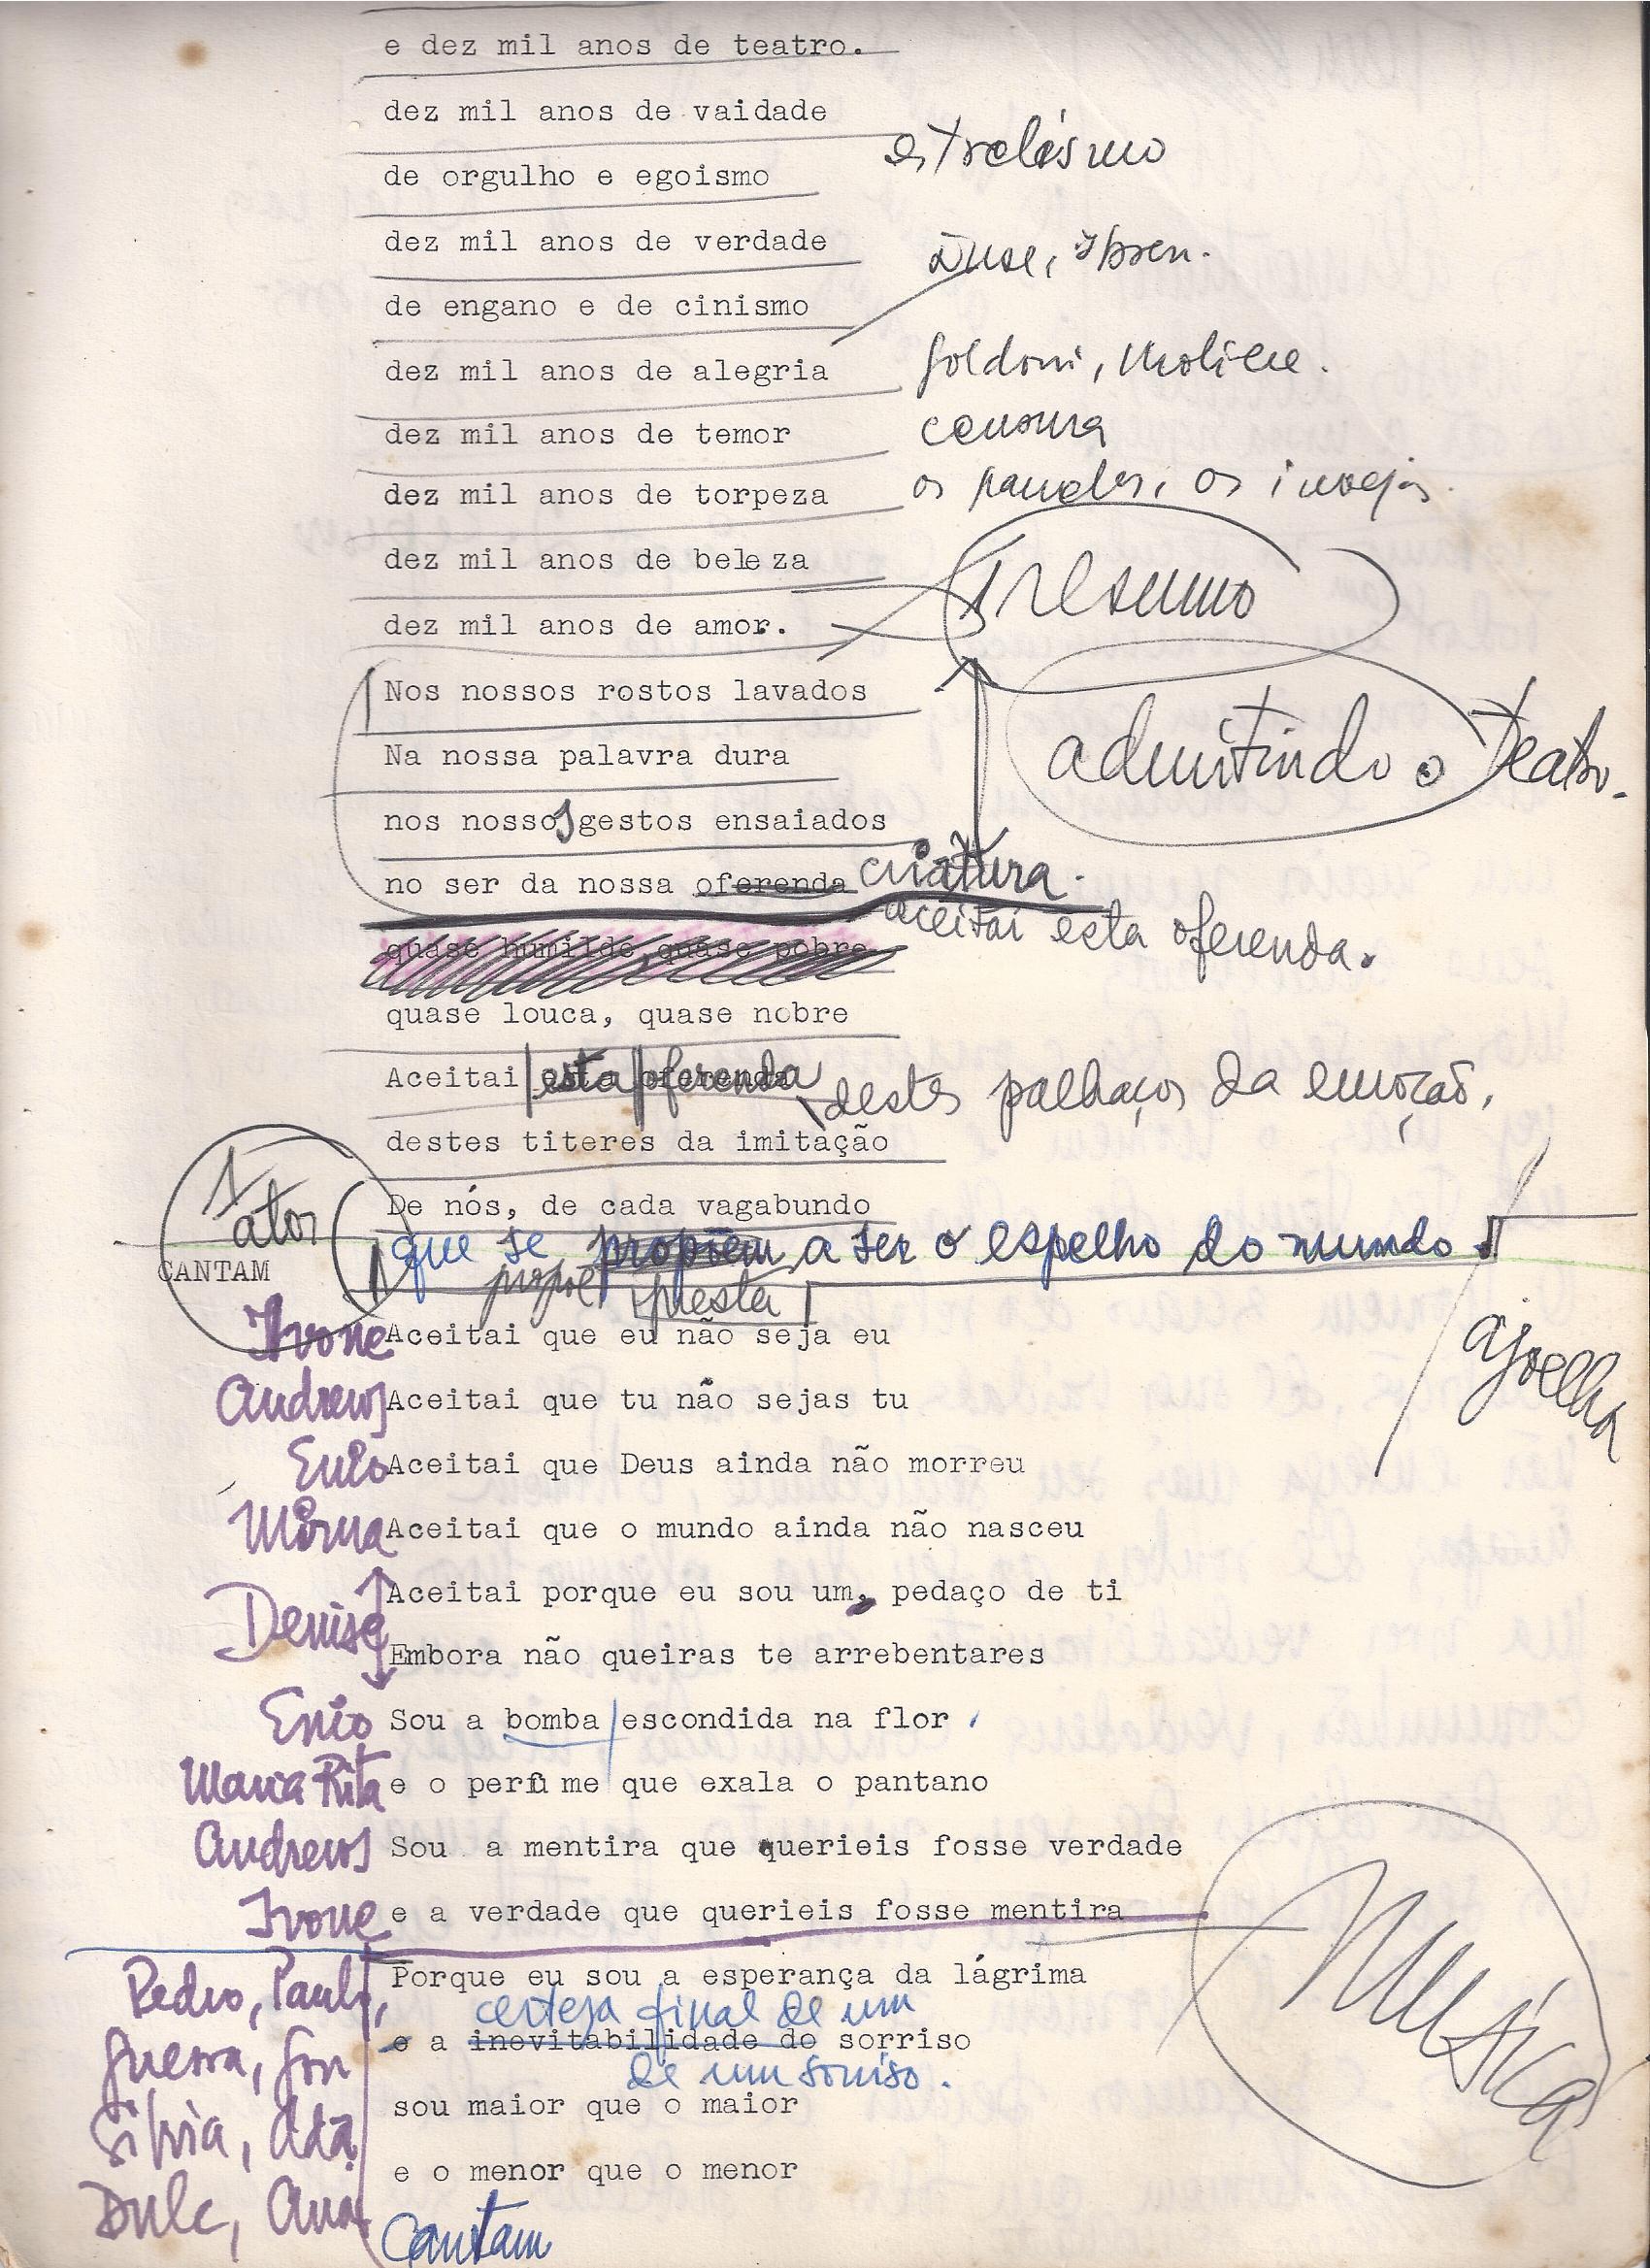 e dez mil anos de teatro.
dez mil anos de vaidade
estrelismo
de orgulho e egoismo
dez mil anos de verdade
Duse, Ibsen.
de engano e de cinismo
dez mil anos de alegria
Goldoni, Moliere.
dez mil anos de temor
censura
dez mil anos de torpeza
os , os invejas.
dez mil anos de beleza
resumo
dez mil anos de amor.
Nos nossos rostos lavados
Na nossa palavra dura
admitindo o Teatro.
nos nossos gestos ensaiados
no ser da nossa oferenda criatura.
aceitai esta oferenda.
quase humilde, quase pobre
quase louca, quase nobre
Aceitai esta oferenda
destes palhaços da emoção,
destes titeres da imitação
De nós, de cada vagabundo
1 ator
que se propõem a ser o espelho do mundo.
CANTAM
propõe presta
ajoelha
Ivone Aceitai que eu não seja eu
Andrews Aceitai que tu não sejas tu
Enio Aceitai que Deus ainda não morreu
Mirna Aceitai que o mundo ainda não nasceu
Denise Aceitai porque eu sou um, pedaço de ti
Embora não queiras te arrebentares
Enio Sou a bomba escondida na flor
Maria Rita e o perfume que exala o pantano
Andrews Sou a mentira que querieis fosse verdade
Ivone e a verdade que querieis fosse mentira
Musica
Pedro, Paulo, Porque eu sou a esperança da lágrima
certeza final de um
Guerra, e a inevitabilidade do sorriso
de um sorriso.
Silvia, Ada, sou maior que o maior
e o menor que o menor
Dulc, Ana
Cantam